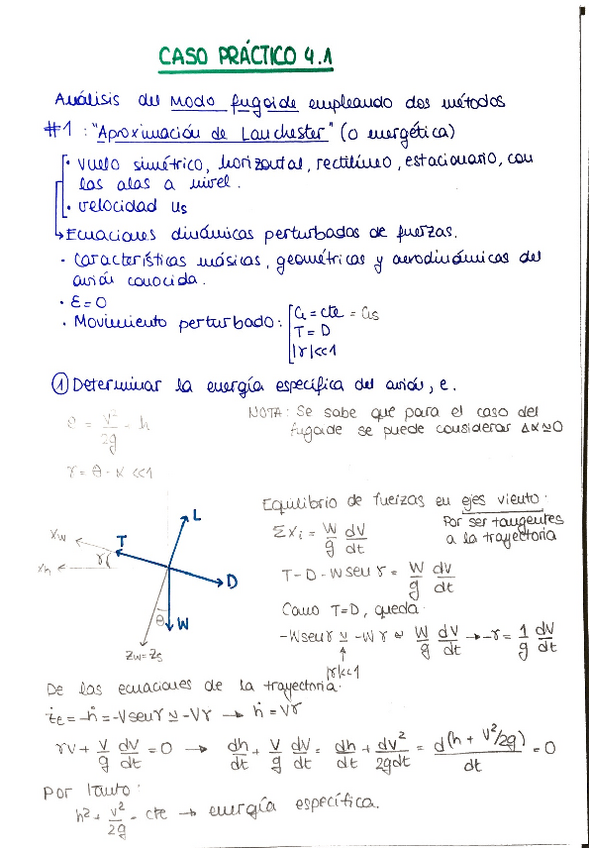 CASO PRÁCTICO 4.1
Análisis del modo fugoide empleando dos métodos
#1 : "Aproximación de Lanchester" (o energética)
· vuelo simétrico, horizontal, rectilíneo, estacionario, con
las alas a nivel.
· velocidad us
↳ Ecuaciones dinámicas perturbadas de fuerzas.
· Características másicas, geométricas y aerodinámicas del
avión conocida.
· ε=0
· Movimiento perturbado: CL = cte = CLs
T = D
|γ|<<1
① Determinar la energía específica del avión, e.
e = V²/2g - h
γ = θ - α <<1
NOTA: Se sabe que para el caso del
fugoide se puede considerar Δα≃0
Equilibrio de fuerzas en ejes viento.
Por ser tangentes
a la trayectoria
ΣXi = W/g dV/dt
T - D - W sen γ = W/g dV/dt
Como T=D, queda.
-W sen γ ≃ -W γ ≃ W/g dV/dt → -γ = 1/g dV/dt
↑
|γ|<<1
L
T
D
W
Xw
Xh
γ
θ
Zw=Zs
De las ecuaciones de la trayectoria.
że = -ḣ = -V sen γ ≃ -Vγ → ḣ = Vγ
γV + V/g dV/dt = 0 → dh/dt + V/g dV/dt = dh/dt + dV²/2gdt = d(h + V²/2g)/dt = 0
Por tanto:
h² + V²/2g - cte → energía específica.